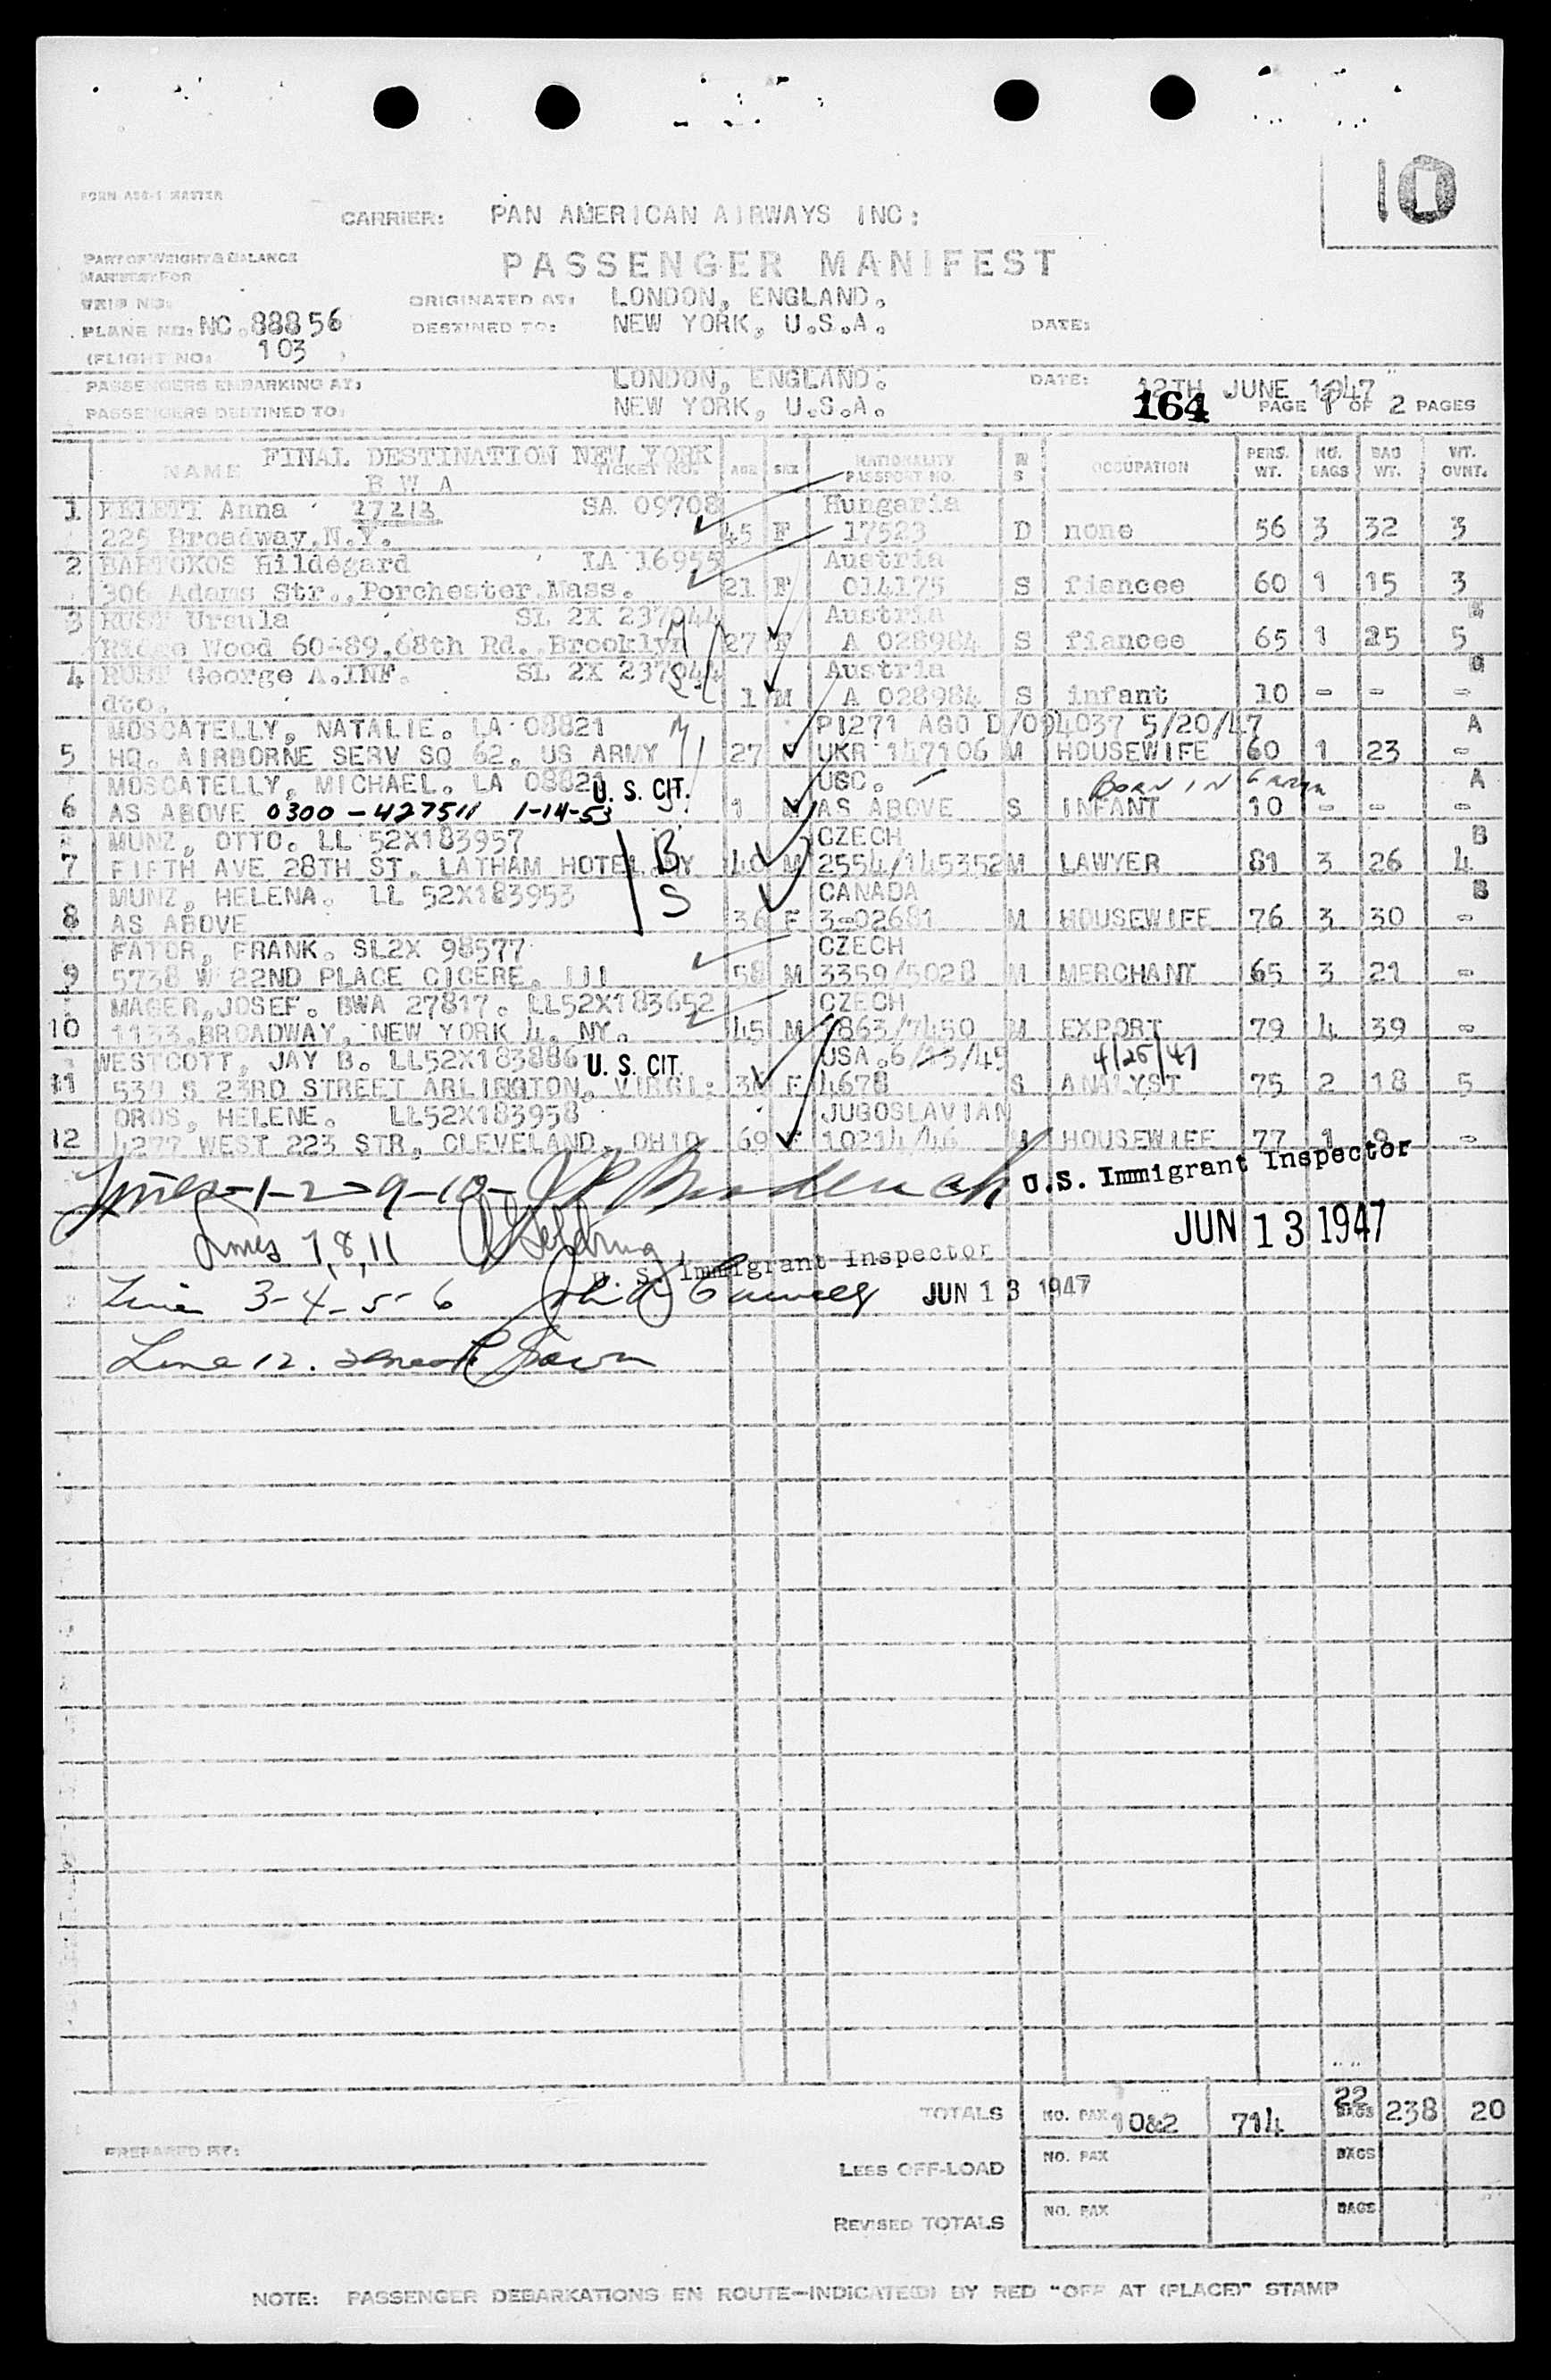 10
FORM ASG-1 MASTER
CARRIER: PAN AMERICAN AIRWAYS INC:
PART OF WEIGHT & BALANCE
MANIFEST FOR
PASSENGER MANIFEST
TRIP NO: ORIGINATED AT: LONDON, ENGLAND.
PLANE NO: NC.88856 DESTINED TO: NEW YORK, U.S.A. DATE:
(FLIGHT NO: 103 )
PASSENGERS EMBARKING AT: LONDON, ENGLAND. DATE: 12TH JUNE 1947
PASSENGERS DESTINED TO: NEW YORK, U.S.A. 164 PAGE 1 OF 2 PAGES
FINAL DESTINATION NEW YORK
NAME TICKET NO. AGE SEX NATIONALITY PASSPORT NO. M S OCCUPATION PERS. WT. NO. BAGS BAG WT. WT. OVNT.
B W A
1 Anna 27213 SA 09708 Hungaria
225 Broadway.N.Y. 45 F 17523 D none 56 3 32 3
2 BARTOKOS Hildegard LA 16955 Austria
306 Adams Str., Porchester.Mass. 21 F 014175 S fiancee 60 1 15 3
3 RUST Ursula SL 2X 237944 Austria
Ridge Wood 60-89,68th Rd. Brooklyn 27 F A 028984 S fiancee 65 1 25 5
4 RUST George A.INF. SL 2X 237944 Austria
dto. 1 M A 028984 S infant 10 - - -
MOSCATELLY, NATALIE. LA 08821 P1271 AGO D/094037 5/20/47 A
5 HQ. AIRBORNE SERV SQ 62. US ARMY 27 UKR 147106 M HOUSEWIFE 60 1 23 -
MOSCATELLY, MICHAEL. LA 08821 U. S. CIT. USC. BORN IN A
6 AS ABOVE 0300-427511 1-14-53 1 AS ABOVE S INFANT 10 - - -
MUNZ, OTTO. LL 52X183957 B CZECH B
7 FIFTH AVE 28TH ST. LATHAM HOTEL NY 40 M 2554/145352 M LAWYER 81 3 26 4
MUNZ, HELENA. LL 52X183953 S CANADA B
8 AS ABOVE 36 F 3-02681 M HOUSEWIFE 76 3 30 -
FATOR, FRANK. SL2X 98577 CZECH
9 5738 W 22ND PLACE CICERE. Ill 58 M 3359/5028 M MERCHANT 65 3 21 -
MAGER, JOSEF. BWA 27817. LL52X183652 CZECH
10 1133.BROADWAY, NEW YORK 4. NY. 45 M 1863/7450 M EXPORT 79 4 39 -
WESTCOTT, JAY B. LL52X183886 U. S. CIT. USA.6/23/45 4/25/47
11 539 S 23RD STREET ARLINGTON, VIRGI: 36 F 4678 S ANALYST 75 2 18 5
OROS, HELENE. LL52X183958 JUGOSLAVIAN
12 4277 WEST 223 STR, CLEVELAND, OHIO 69 F 10214/46 M HOUSEWIFE 77 1 9 -
Lines-1-2-9-10- U.S. Immigrant Inspector
JUN 13 1947
Lines 7,8,11 U. S. Immigrant Inspector
Line 3-4-5-6 JUN 13 1947
Line 12.
TOTALS NO. PAX 10&2 714 22 BAGS 238 20
PREPARED BY:
LESS OFF-LOAD NO. PAX BAGS
REVISED TOTALS NO. PAX BAGS
NOTE: PASSENGER DEBARKATIONS EN ROUTE-INDICATE(D) BY RED "OFF AT (PLACE)" STAMP